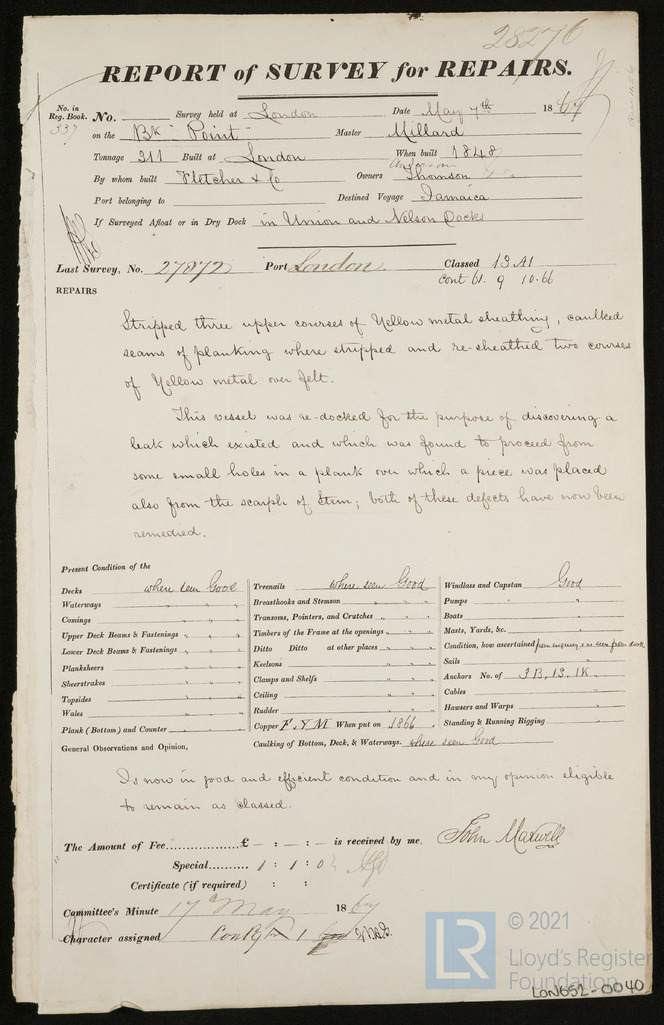 28276
REPORT of SURVEY for REPAIRS.
No. in Reg. Book. No. Survey held at London Date May 7th 1867
337 on the Bk Point Master Millard
Tonnage 311 Built at London When built 1848
By whom built Fletcher & Co Owners Anderson Thomson & Co
Port belonging to Destined Voyage Jamaica
If Surveyed Afloat or in Dry Dock in Union and Nelson Docks
Last Survey, No. 27872 Port London Classed 13 A1
Cont 61. 9 10.66
REPAIRS
Stripped three upper courses of Yellow metal sheathing, caulked
seams of planking where stripped and re-sheathed two courses
of Yellow metal over felt.
This vessel was re-docked for the purpose of discovering a
leak which existed and which was found to proceed from
some small holes in a plank over which a piece was placed
also from the scarph of Stem; both of these defects have now been
remedied.
Present Condition of the
Decks where seen Good Treenails where seen Good Windlass and Capstan Good
Waterways " " " Breasthooks and Stemson " " " Pumps "
Comings " " " Transoms, Pointers, and Crutches " " " Boats "
Upper Deck Beams & Fastenings " " " Timbers of the Frame at the openings " " " Masts, Yards, &c. "
Lower Deck Beams & Fastenings " " " Ditto Ditto at other places " " " Condition, how ascertained from enquiry & as seen from deck
Planksheers " " " Keelsons " " " Sails "
Sheerstrakes " " " Clamps and Shelfs " " " Anchors No. of 3B, 1S, 1K.
Topsides " " " Ceiling " " " Cables "
Wales " " " Rudder " " " Hawsers and Warps "
Plank (Bottom) and Counter " " " Copper F Y M When put on 1866 Standing & Running Rigging "
General Observations and Opinion, Caulking of Bottom, Deck, & Waterways. where seen Good
Is now in good and efficient condition and in my opinion eligible
to remain as classed.
The Amount of Fee.................. £ - : - : - is received by me, John Maxwell
Special.......... 1 : 1 : 0
Certificate (if required) : :
Committee's Minute 17th May 1867
Character assigned 1
© 2021
LR Lloyd's Register
Foundation
LON652-0040